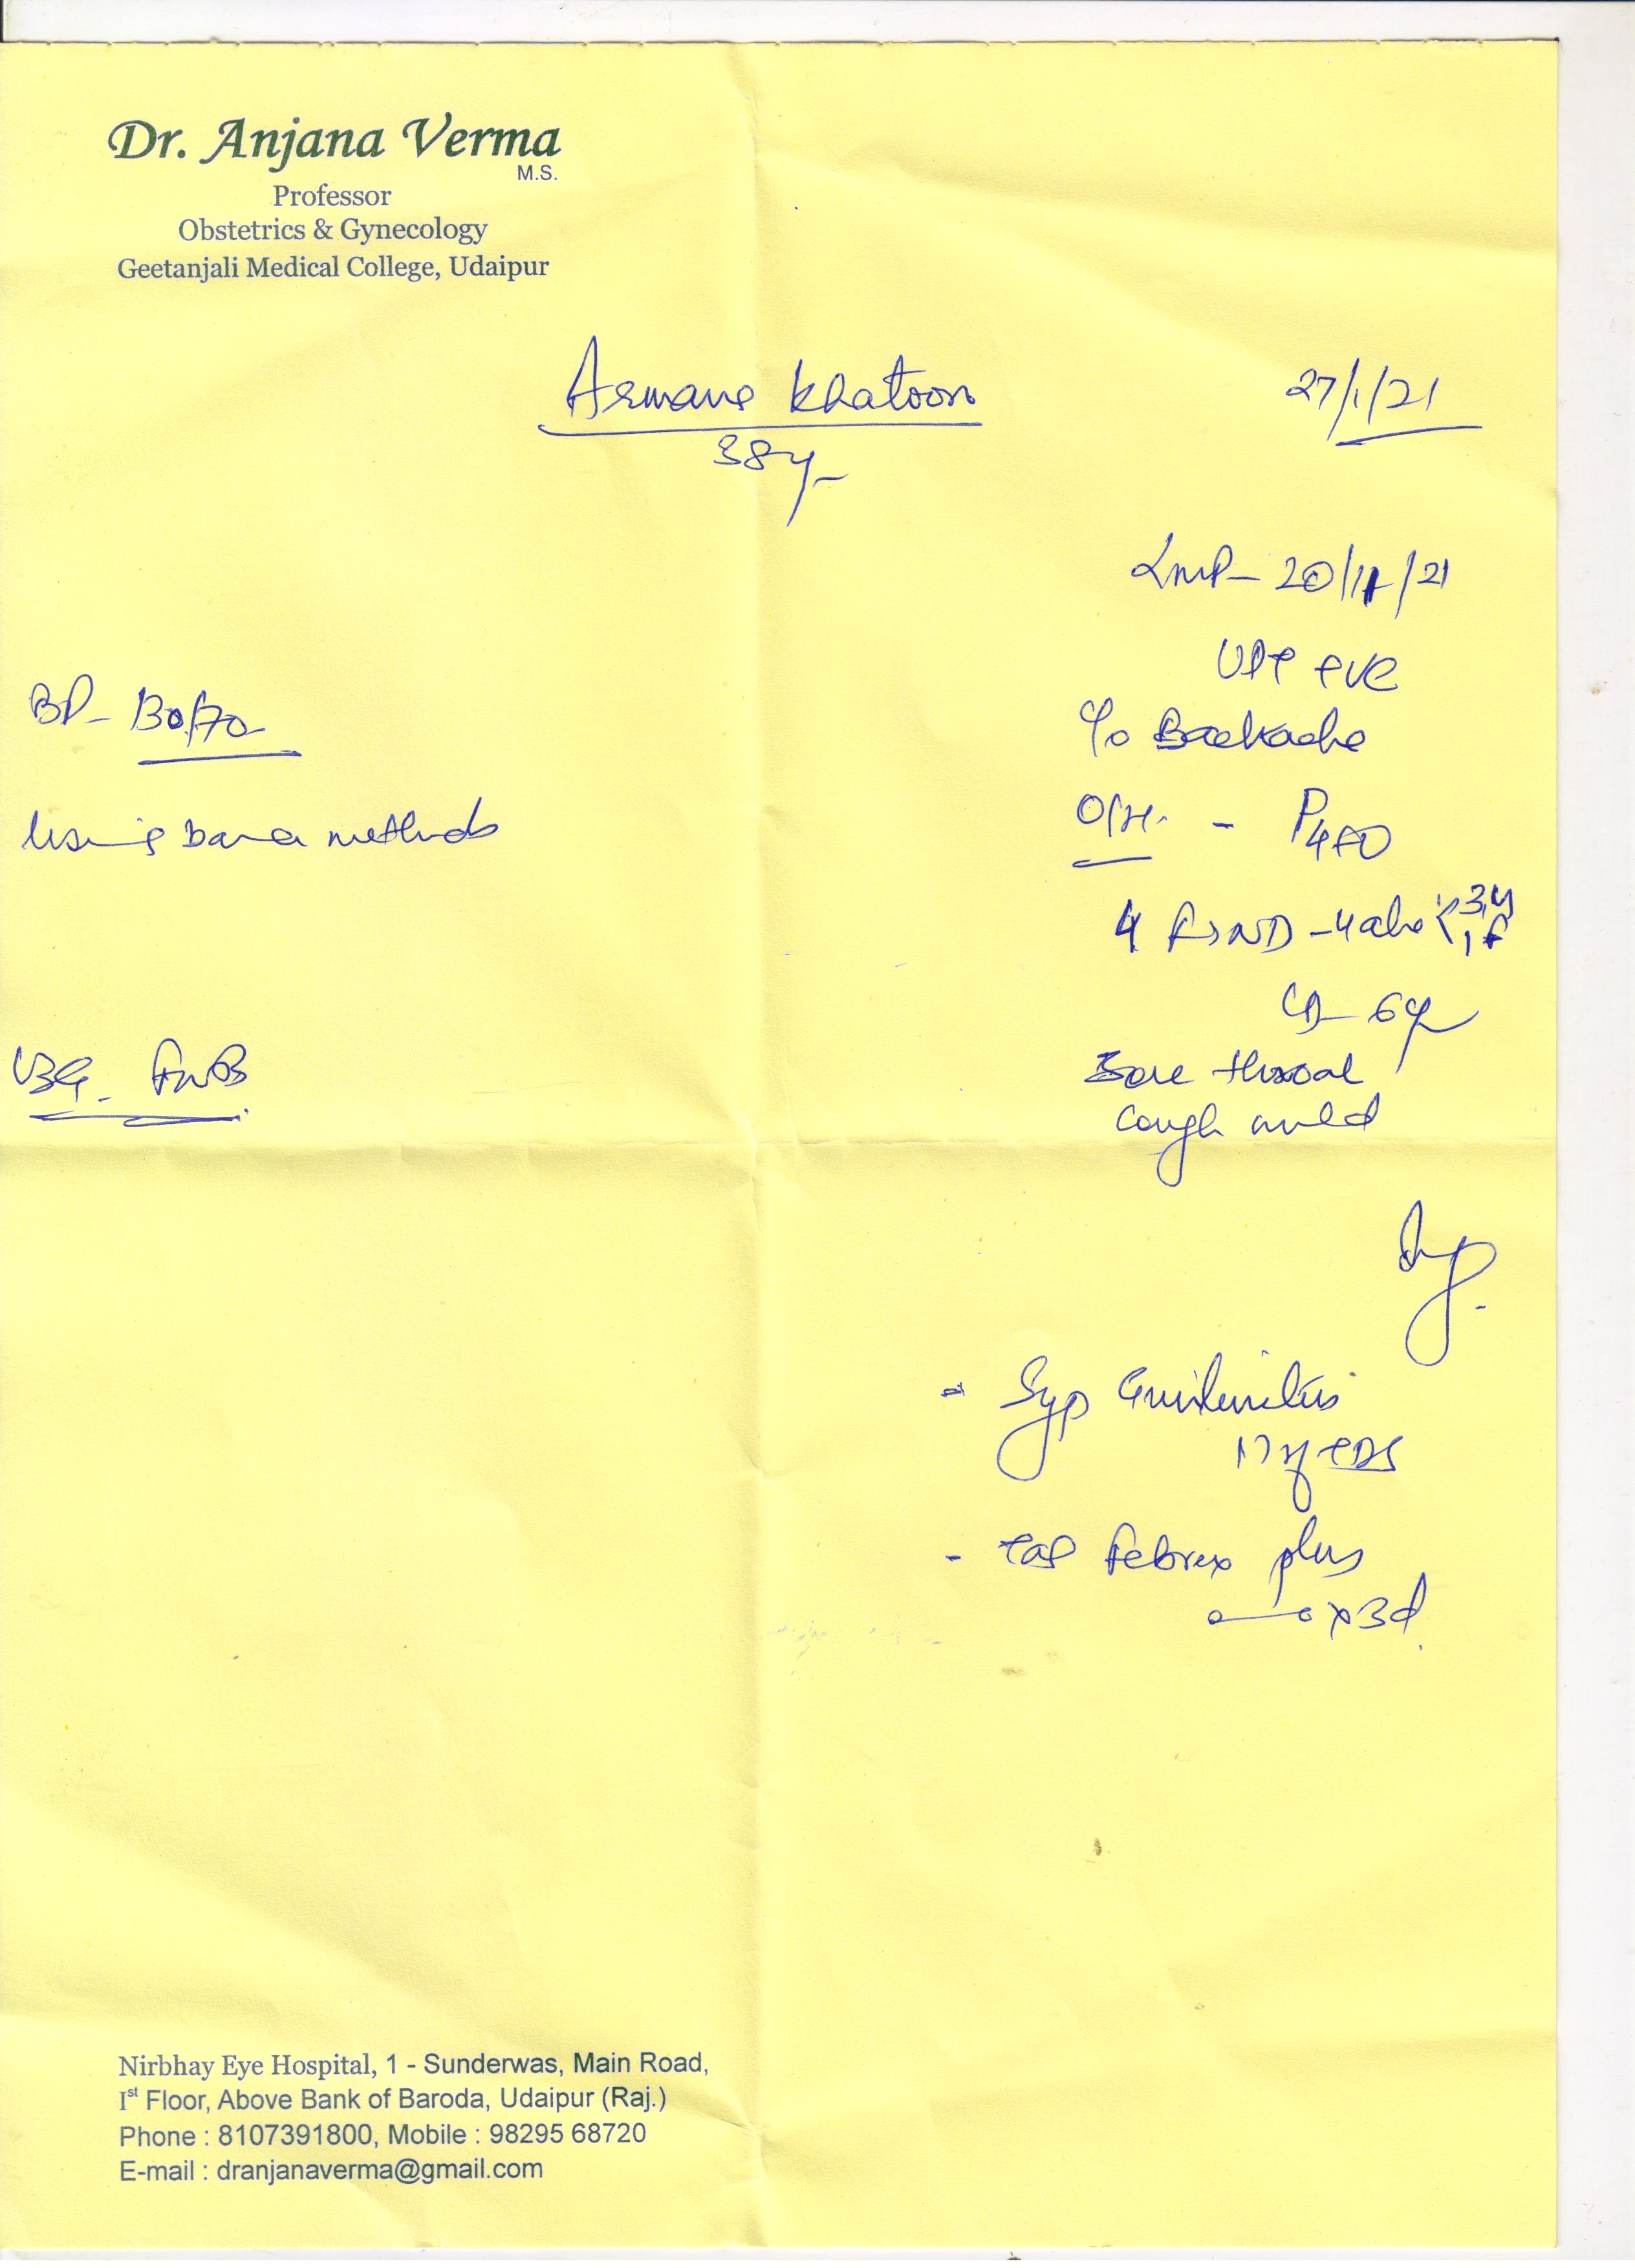 Dr. Anjana Verma
M.S.
Professor
Obstetrics & Gynecology
Geetanjali Medical College, Udaipur
Khatoon
27/1/21
38y
LMP - 20/11/21
UPT +ve
C/o Backache
BP - 130/70
O/H. - P4A0
Using methods
4 FTND - 4
LD - 6y
Sore throat
USG.
Cough mild
- Syp
TDS
- Tab Febrex plus
x 3d
Nirbhay Eye Hospital, 1 - Sunderwas, Main Road,
Ist Floor, Above Bank of Baroda, Udaipur (Raj.)
Phone : 8107391800, Mobile : 98295 68720
E-mail : dranjanaverma@gmail.com